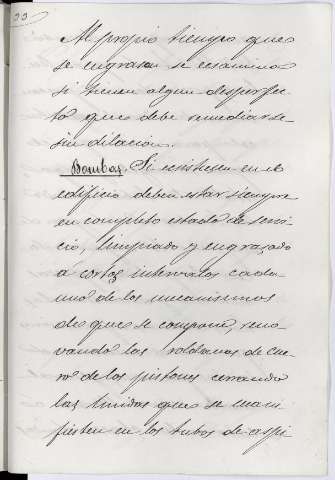 33
Al propio tiempo que
se engrasan se examina
si tienen algun desperfec
to que debe remediarse
sin dilacion.
Bombas. Si existiesen en el
edificio deben estar siempre
en completo estado de servi
cio, limpiando y engrasando
a cortos intervalos cada
uno de los mecanismos
de que se compone, reno
vando las rodanas de cue
ro de los pistones cerrando
las que se mani
fiesten en los tubos de aspi